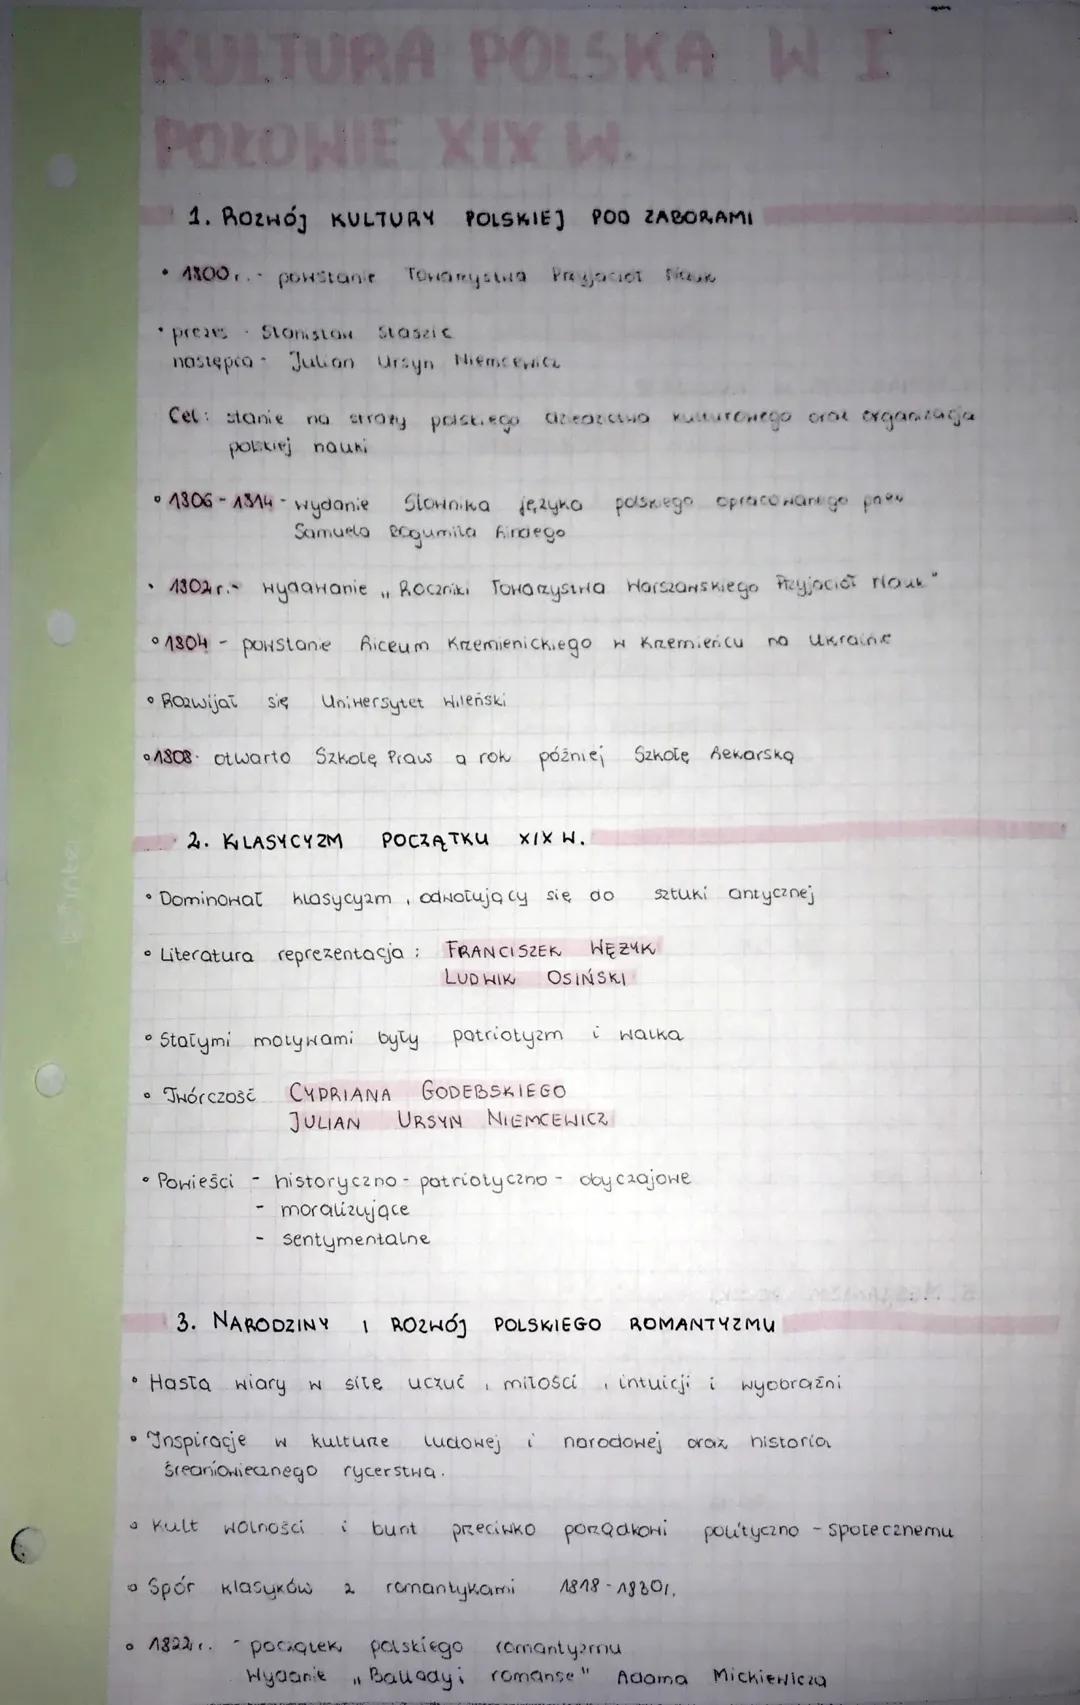 KULTURA POLSKA W I
POŁOWIE XIX W.
1. ROZWÓJ KULTURY POLSKIEJ POD ZABORAMI
• 1800 r. - powstanie Towarzystwa Przyjaciół Nauk
• prezes - Stanisław Staszic
następca - Julian Ursyn Niemcewicz
Cel: stanie na straży polskiego dziedzictwa kulturowego oraz organizacja
polskiej nauki
• 1806 - 1814 - wydanie Słownika języka polskiego opracowanego przez
Samuela Bogumiła Lindego
• 1802 r. - wydawanie „Roczniki Towarzystwa Warszawskiego Przyjaciół Nauk"
• 1804 - powstanie Liceum Krzemienickiego w Krzemieńcu na Ukrainie
• Rozwijał się Uniwersytet Wileński
• 1808 - otwarto Szkołę Praw a rok później Szkołę Lekarską
2. KLASYCYZM POCZĄTKU XIX W.
• Dominował klasycyzm, odwołujący się do sztuki antycznej
• Literatura reprezentacja: FRANCISZEK WĘŻYK
LUDWIK OSIŃSKI
• Stałymi motywami były patriotyzm i walka
• Twórczość CYPRIANA GODEBSKIEGO
JULIAN URSYN NIEMCEWICZ
• Powieści - historyczno - patriotyczno - obyczajowe
- moralizujące
- sentymentalne
3. NARODZINY I ROZWÓJ POLSKIEGO ROMANTYZMU
• Hasła wiary w siłę uczuć, miłości, intuicji i wyobraźni
• Inspiracje w kulturze ludowej i narodowej oraz historia
średniowiecznego rycerstwa.
• Kult wolności i bunt przeciwko porządkowi polityczno - społecznemu
• Spór klasyków z romantykami 1818 - 1830 r.
• 1822 r. - początek polskiego romantyzmu
Wydanie „Ballady i romanse" Adama Mickiewicza